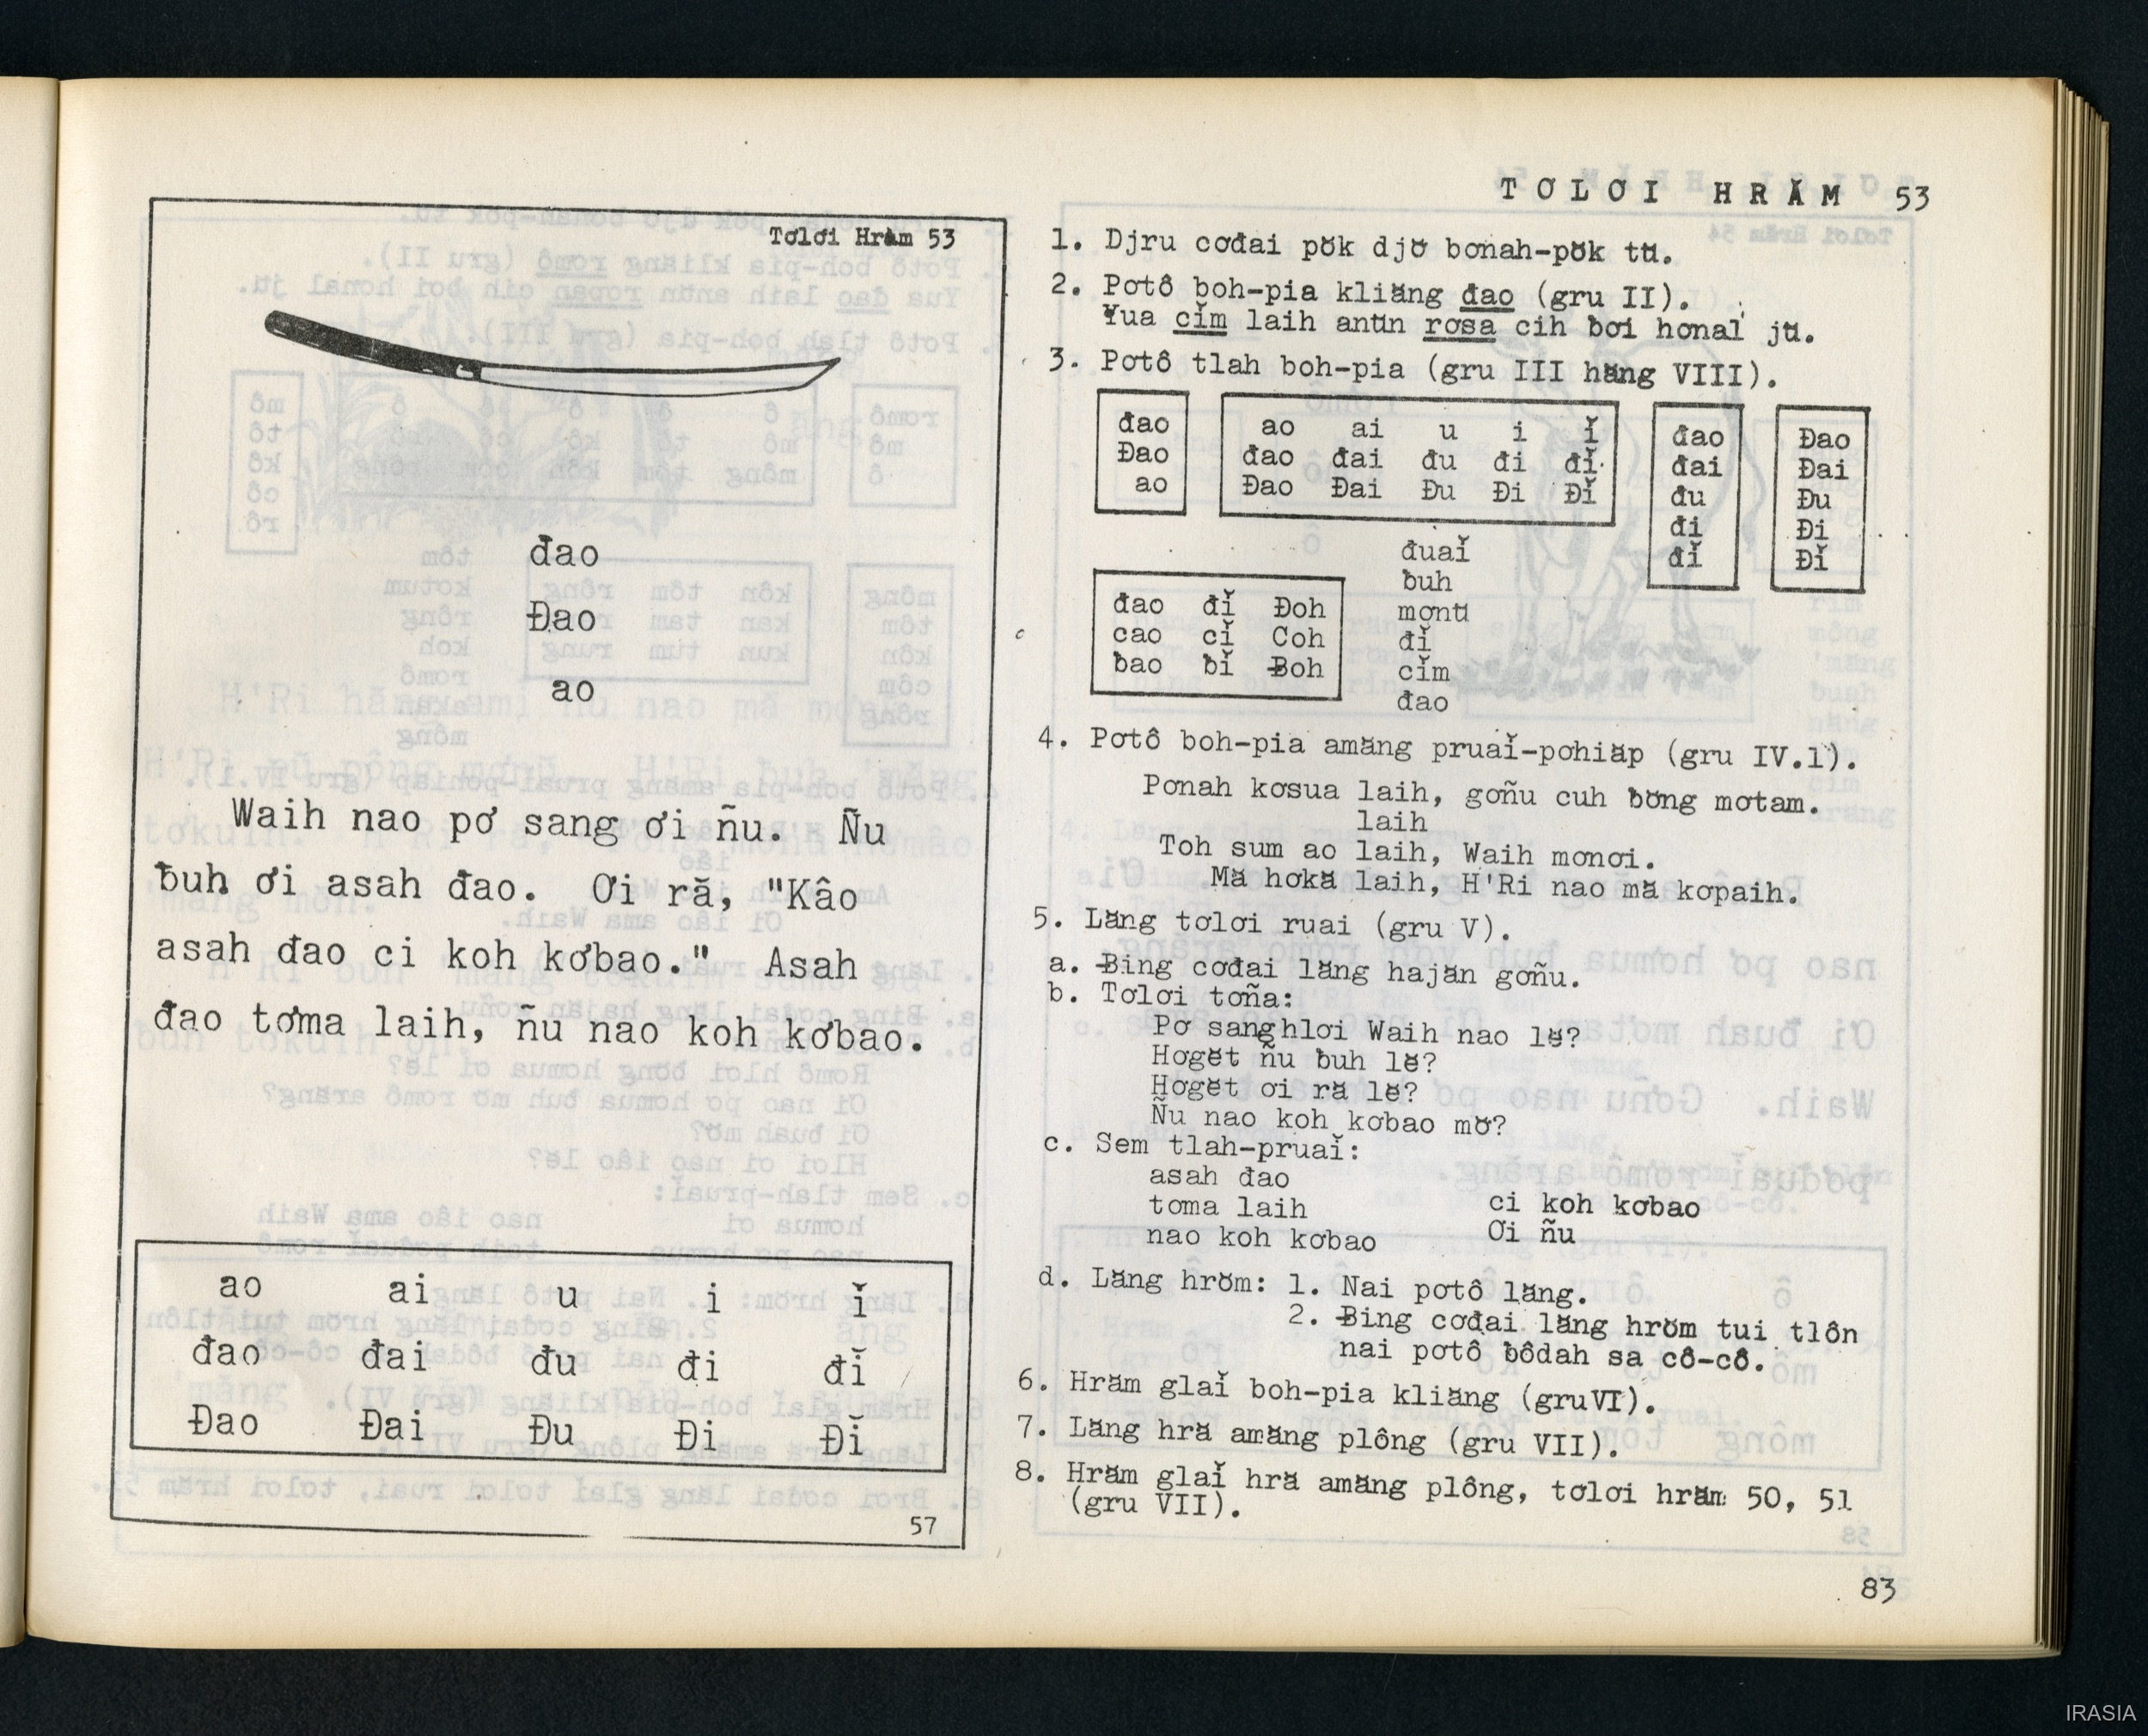 Tơlơi Hrăm 53
đao
Đao
ao
Waih nao pơ sang ơi ñu. Ñu
ƀuh ơi asah đao. Ơi ră, "Kâo
asah đao ci koh kơbao." Asah
đao tơma laih, ñu nao koh kơbao.
ao ai u i ĭ
đao đai đu đi đĭ
Đao Đai Đu Đi Đĭ
57
TƠLƠI HRĂM 53
1. Djru cơđai pŏk djŏ bơnah-pŏk tŭ.
2. Pơtô boh-pia kliăng đao (gru II).
Yua cĭm laih anŭn rơsa cih ƀơi hơnal jŭ.
3. Pơtô tlah boh-pia (gru III hăng VIII).
đao
Đao
ao
ao ai u i ĭ
đao đai đu đi đĭ
Đao Đai Đu Đi Đĭ
đao
đai
đu
đi
đĭ
Đao
Đai
Đu
Đi
Đĭ
đao đĭ Đoh
cao cĭ Coh
ƀao ƀĭ Ƀoh
đuaĭ
ƀuh
mơnŭ
đĭ
cĭm
đao
4. Pơtô boh-pia amăng pruaĭ-pơhiăp (gru IV.1).
Pơnah kơsua laih, gơñu cuh ƀŏng mơtam.
laih
Toh sum ao laih, Waih mơnơi.
Mă hơkă laih, H'Ri nao mă kơpaih.
5. Lăng tơlơi ruai (gru V).
a. Ƀing cơđai lăng hajăn gơñu.
b. Tơlơi tơña:
Pơ sang hlơi Waih nao lĕ?
Hơgĕt ñu ƀuh lĕ?
Hơgĕt ơi ră lĕ?
Ñu nao koh kơbao mŏ?
c. Sem tlah-pruaĭ:
asah đao
tơma laih ci koh kơbao
nao koh kơbao Ơi ñu
d. Lăng hrŏm: 1. Nai pơtô lăng.
2. Ƀing cơđai lăng hrŏm tui tlôn
nai pơtô ƀôdah sa cô-cô.
6. Hrăm glaĭ boh-pia kliăng (gru VI).
7. Lăng hră amăng plông (gru VII).
8. Hrăm glaĭ hră amăng plông, tơlơi hrăm 50, 51
(gru VII).
83
IRASIA